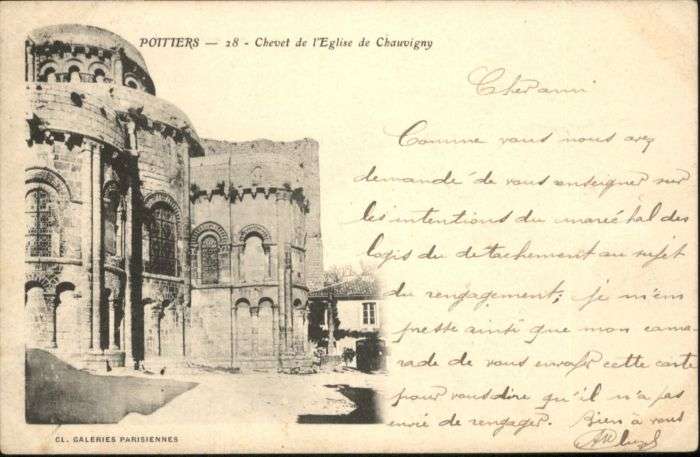 POITIERS — 28 - Chevet de l'Eglise de Chauvigny
Cher ami
Comme vous nous avez
demandé de vous enseigner sur
les intentions du maréchal des
logis du detachement au sujet
du rengagement; je m'em
presse ainsi que mon cama
rade de vous envoyer cette carte
pour vous dire qu'il n'a pas
envie de rengager. Bien à vous
CL. GALERIES PARISIENNES